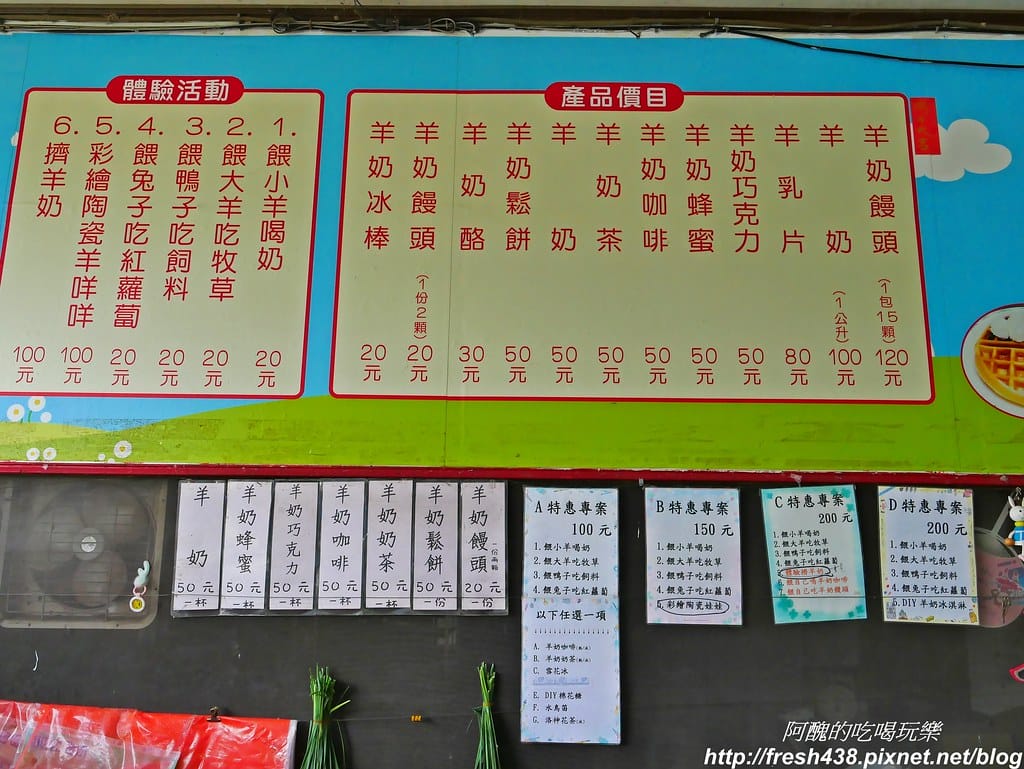 體驗活動
1. 餵小羊喝奶 20元
2. 餵大羊吃牧草 20元
3. 餵鴨子吃飼料 20元
4. 餵兔子吃紅蘿蔔 20元
5. 彩繪陶瓷羊咩咩 100元
6. 擠羊奶 100元
產品價目
羊奶饅頭(1包15顆) 120元
羊奶(1公升) 100元
羊乳片 80元
羊奶巧克力 50元
羊奶蜂蜜 50元
羊奶咖啡 50元
羊奶茶 50元
羊奶 50元
羊奶鬆餅 50元
羊奶酪 30元
羊奶饅頭(1份2顆) 20元
羊奶冰棒 20元
羊奶 50元 一杯
羊奶蜂蜜 50元 一杯
羊奶巧克力 50元 一杯
羊奶咖啡 50元 一杯
羊奶奶茶 50元 一杯
羊奶鬆餅 50元 一份
羊奶饅頭 一份兩顆 20元 一份
A特惠專案
100元
1.餵小羊喝奶
2.餵大羊吃牧草
3.餵鴨子吃飼料
4.餵兔子吃紅蘿蔔
以下任選一項
↓↓↓↓↓↓↓↓↓↓↓↓
A. 羊奶咖啡(熱/冰)
B. 羊奶奶茶(熱/冰)
C. 雪花冰
E. DIY棉花糖
F. 水鳥笛
G. 洛神花茶(冰)
B特惠專案
150元
1.餵小羊喝奶
2.餵大羊吃牧草
3.餵鴨子吃飼料
4.餵兔子吃紅蘿蔔
5.彩繪陶瓷娃娃
C特惠專案
200元
1.餵小羊喝奶
2.餵大羊吃牧草
3.餵鴨子吃飼料
4.餵兔子吃紅蘿蔔
5.體驗擠羊奶
6.餵自己喝羊奶咖啡
7.餵自己吃羊奶饅頭
D特惠專案
200元
1.餵小羊喝奶
2.餵大羊吃牧草
3.餵鴨子吃飼料
4.餵兔子吃紅蘿蔔
5.DIY羊奶冰淇淋
阿醜的吃喝玩樂
http://fresh438.pixnet.net/blog